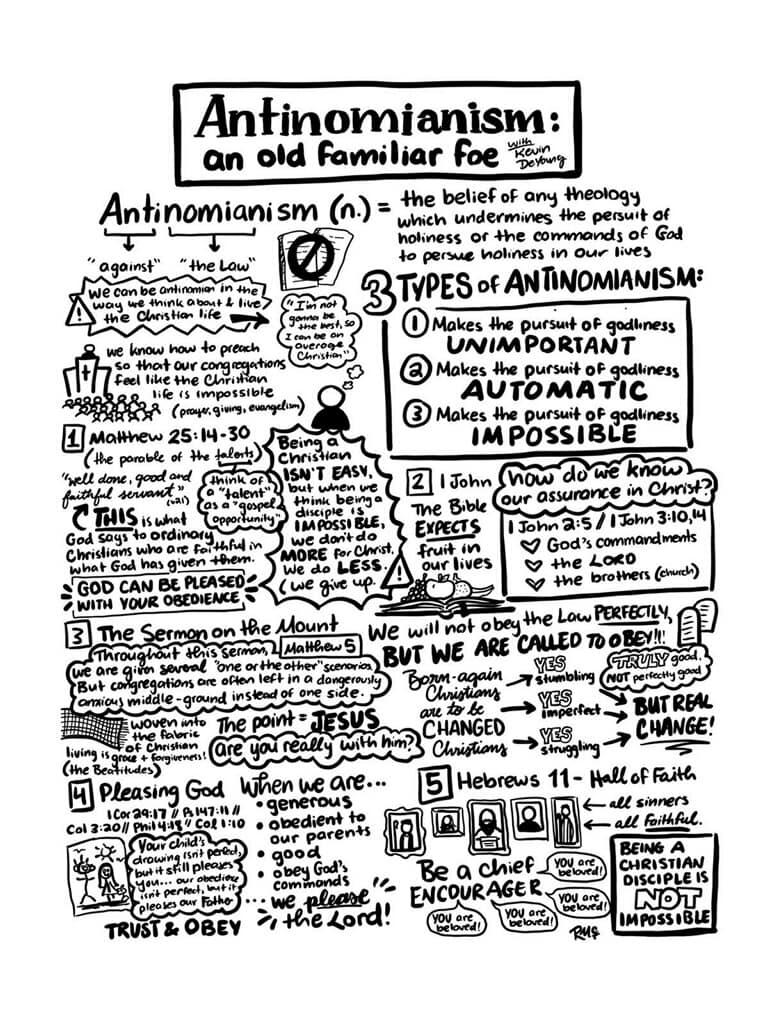 Antinomianism:
an old familiar foe
with
Kevin
DeYoung
Antinomianism (n.) =
the belief of any theology
which undermines the persuit of
holiness or the commands of God
to persue holiness in our lives
"against" "the Law"
We can be antinomian in the
way we think about & live
the Christian life
"I'm not
gonna be
the best, so
I can be an
average
Christian"
we know how to preach
so that our congregations
feel like the Christian
life is impossible
(prayer, giving, evangelism)
3 TYPES of ANTINOMIANISM:
1 Makes the pursuit of godliness
UNIMPORTANT
2 Makes the pursuit of godliness
AUTOMATIC
3 Makes the pursuit of godliness
IMPOSSIBLE
1 Matthew 25:14-30
(the parable of the talents)
"well done, good and
faithful servant" (v21)
think of
a "talent"
as a "gospel
opportunity"
THIS is what
God says to ordinary
Christians who are faithful in
what God has given them.
GOD CAN BE PLEASED
WITH YOUR OBEDIENCE
Being a
Christian
ISN'T EASY,
but when we
think being a
disciple is
IMPOSSIBLE,
we don't do
MORE for Christ,
we do LESS.
(we give up.)
2 1 John
The Bible
EXPECTS
fruit in
our lives
how do we know
our assurance in Christ?
1 John 2:5 / 1 John 3:10,14
God's commandments
the LORD
the brothers (church)
3 The Sermon on the Mount
Matthew 5
Throughout this sermon,
we are given several "one or the other" scenarios.
But congregations are often left in a dangerously
anxious middle-ground instead of one side.
woven into
the fabric
of Christian
living is grace + forgiveness!
(the Beatitudes)
The point = JESUS
(are you really with him?)
We will not obey the Law PERFECTLY,
BUT WE ARE CALLED TO OBEY!!!
Born-again
Christians
are to be
CHANGED
Christians
YES
stumbling
YES
imperfect
YES
struggling
TRULY good,
NOT perfectly good
BUT REAL
CHANGE!
4 Pleasing God
1 Cor 29:17 // Ps 147:11 //
Col 3:20 // Phil 4:18 // Col 1:10
Your child's
drawing isn't perfect,
but it still pleases
you... our obedience
isn't perfect, but it
pleases our Father
TRUST & OBEY
When we are...
• generous
• obedient to
our parents
• good
• obey God's
commands
... we please
the Lord!
5 Hebrews 11 - Hall of Faith
all sinners
all Faithful.
Be a chief
ENCOURAGER
YOU are
beloved!
YOU are
beloved!
YOU are
beloved!
YOU are
beloved!
BEING A
CHRISTIAN
DISCIPLE IS
NOT
IMPOSSIBLE
RMS